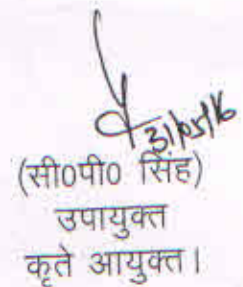 31/05/16
(सी0पी0 सिंह)
उपायुक्त
कृते आयुक्त।